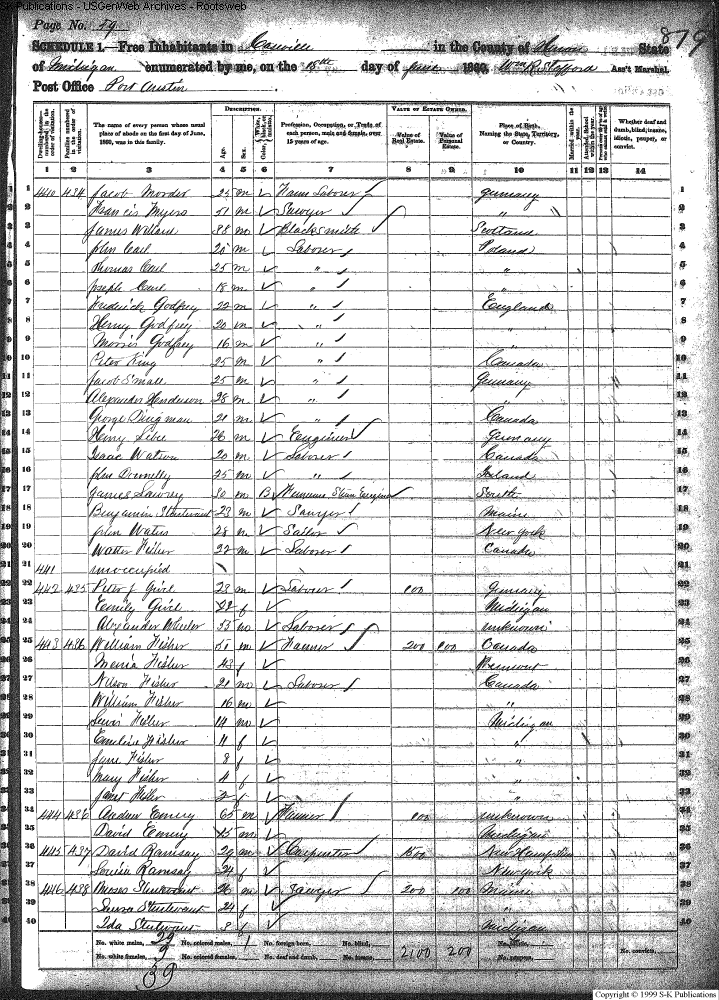 S-K Publications - USGenWeb Archives - Rootsweb
Page No. 59
879
SCHEDULE 1.—Free Inhabitants in in the County of Huron State
of Michigan enumerated by me, on the 18th day of June 1860. Wm R. Stafford Ass't Marshal.
Post Office Port Austin
Dwelling-houses—numbered in the order of visitation.
Families numbered in the order of visitation.
The name of every person whose usual place of abode on the first day of June, 1860, was in this family.
DESCRIPTION.
Age.
Sex.
Color, White, black, or mulatto.
Profession, Occupation, or Trade of each person, male and female, over 15 years of age.
VALUE OF ESTATE OWNED.
Value of Real Estate.
Value of Personal Estate.
Place of Birth, Naming the State, Territory, or Country.
Married within the year.
Attended School within the year.
Whether deaf and dumb, blind, insane, idiotic, pauper, or convict.
1 2 3 4 5 6 7 8 9 10 11 12 13 14
1 440 434 Jacob 25 m Farm Laborer Germany 1
2 Francis Myers 51 m Sawyer " 2
3 James Willard 38 m Blacksmith Scotland 3
4 John m Laborer Poland 4
5 Thomas 25 m " " 5
6 Joseph 18 m " " 6
7 Frederick Godfrey 22 m " England 7
8 Henry Godfrey 20 m " " 8
9 Morris Godfrey 16 m " " 9
10 Peter King 25 m " Canada 10
11 Jacob Small 25 m " Germany 11
12 Alexander Henderson 28 m " " 12
13 George Dingman 21 m " Canada 13
14 Henry 26 m Engineer Germany 14
15 Isaac Watson 20 m Laborer Canada 15
16 John Donnelly 25 m " Ireland 16
17 James 50 m B Engineer South 17
18 Benjamin Sturtevant 23 m Sawyer Maine 18
19 John Waters 28 m Sailor New York 19
20 Walter Fisher 22 m Laborer Canada 20
21 441 unoccupied 21
22 442 435 Peter J 23 m Laborer 100 Germany 22
23 Emily 22 f Michigan 23
24 Alexander Wheeler 33 m Laborer unknown 24
25 443 436 William Fisher 51 m Farmer 200 Canada 25
26 Fisher 43 f Vermont 26
27 Nilson Fisher 21 m Laborer Canada 27
28 William Fisher 16 m " 28
29 Lewis Fisher 14 m Michigan 29
30 Emeline Fisher 11 f " 30
31 Jane Fisher 8 f " 31
32 Mary Fisher 4 f " 32
33 Janet Fisher 2 f " 33
34 444 436 Andrew Emery 65 m Farmer unknown 34
35 David Emery 15 m Michigan 35
36 445 437 David Ramsay 29 m Carpenter 1500 New Hampshire 36
37 Louisa Ramsay 24 f New York 37
38 446 438 Moses Sturtevant 26 m Sawyer 200 100 Maine 38
39 Laura Sturtevant 24 f " 39
40 Ida Sturtevant f Michigan 40
No. white males, 29 No. colored males, 1 No. foreign born, No. blind,
2100 200
No. white females, 9 No. colored females, No. deaf and dumb, No. insane, No. convicts,
39
Copyright © 1999 S-K Publications